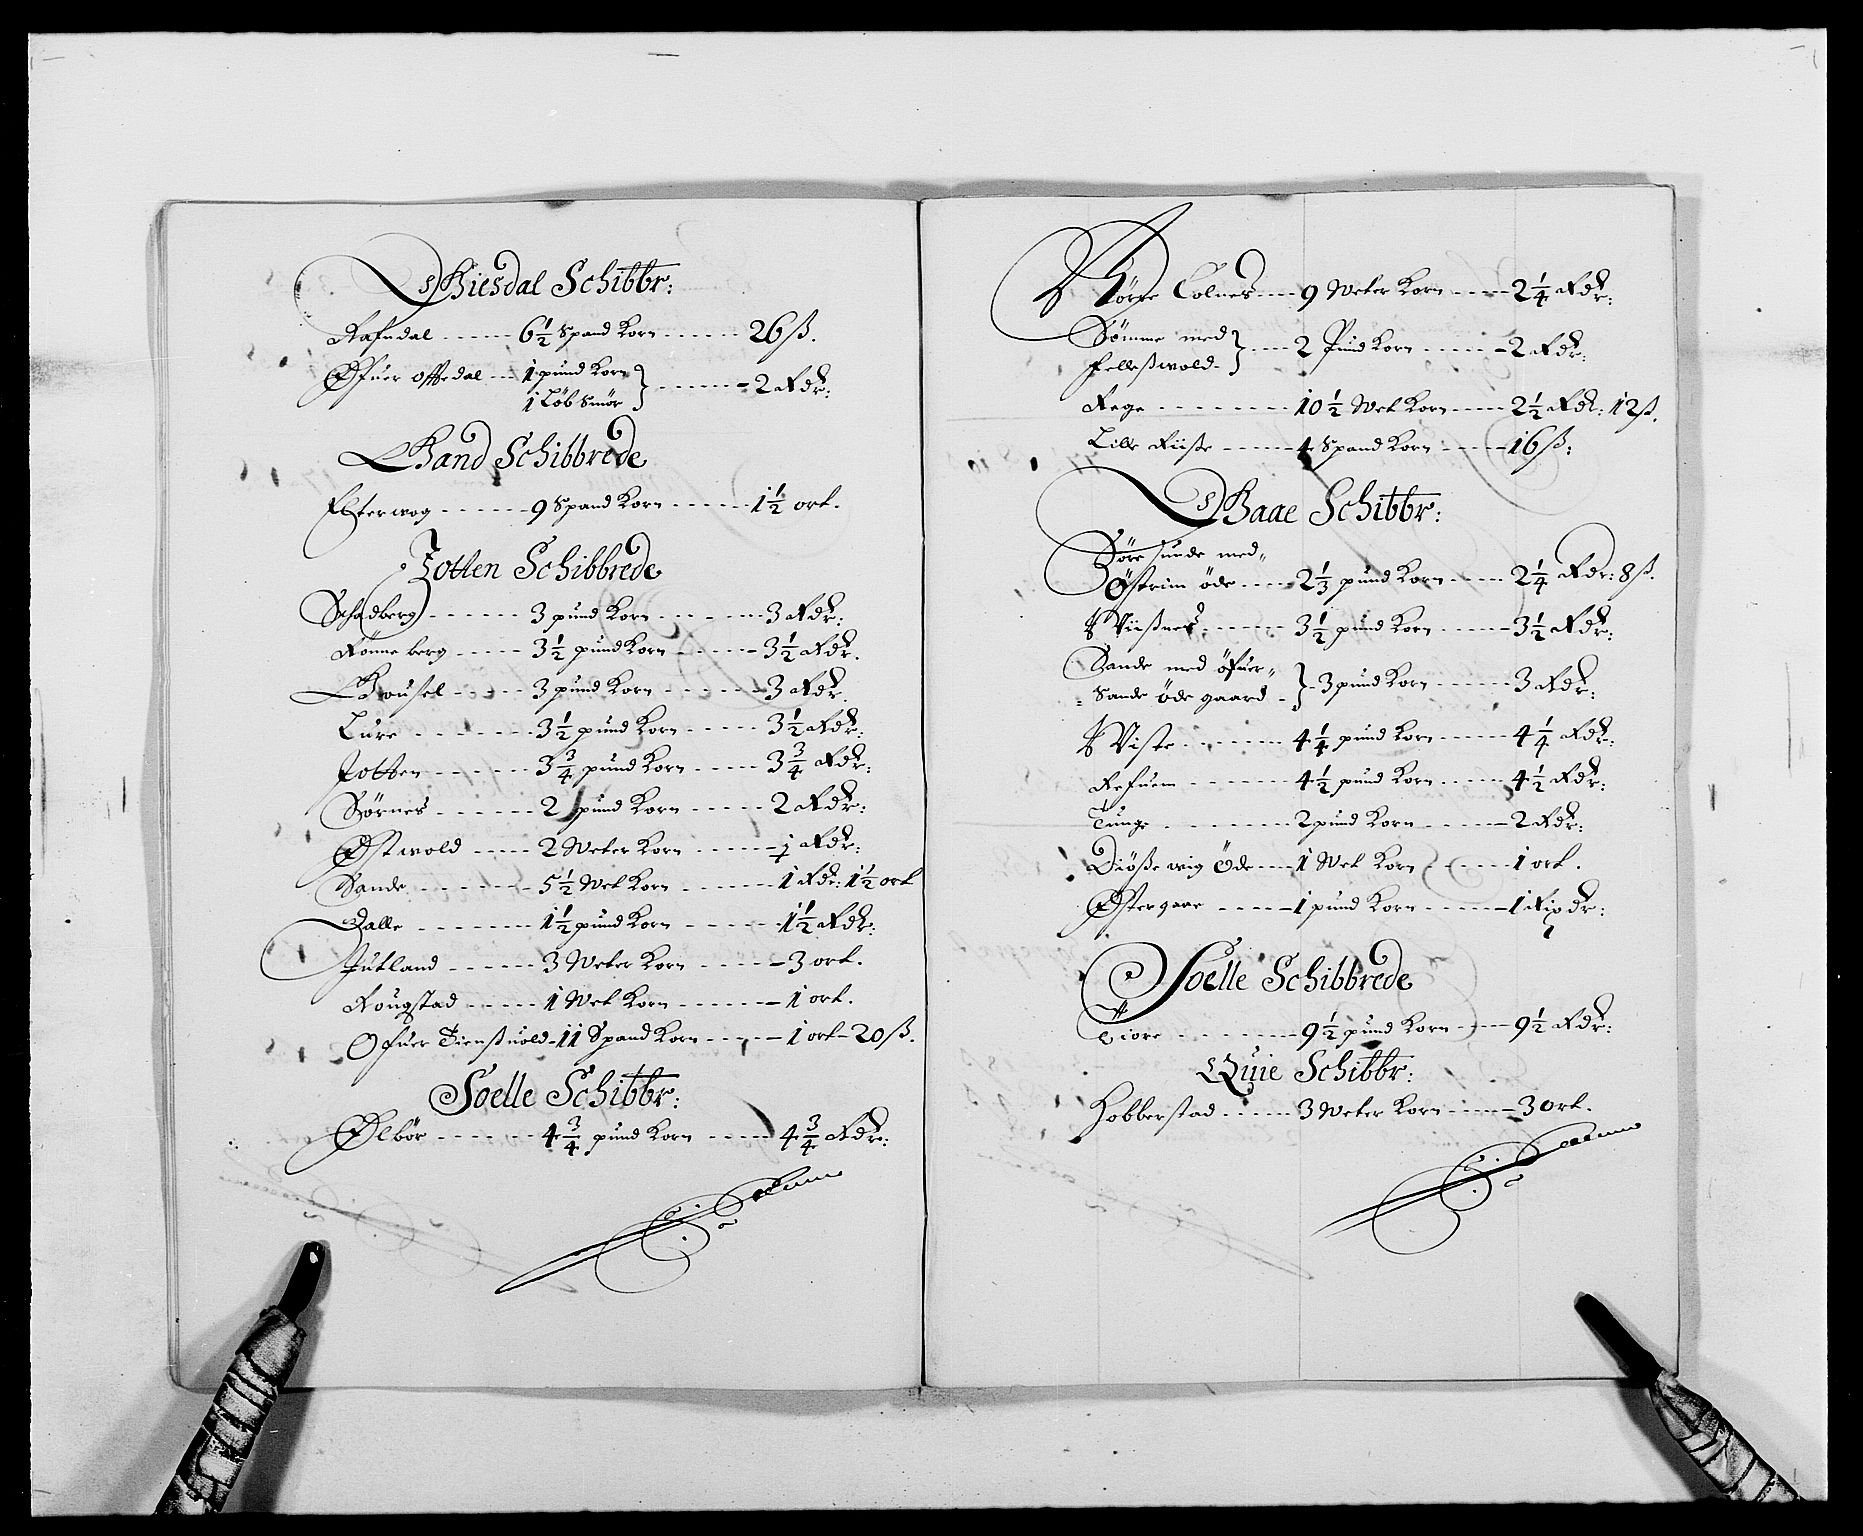 Giesdal Schibbr:
Rafndal ------ 6½ Spand Korn ------ 26ß.
Øfuer Offvedal --- 1 pund Korn
1 Løb Smør } ------- 2 Rdr:
Hand Schibbrede
Efterwog ------ 9 Spand Korn ------ 1½ ort.
Jotten Schibbrede
Schadberg ------ 3 pund Korn ------- 3 Rdr:
Rønneberg ----- 3½ pund Korn ------ 3½ Rdr.
Gousel ------ 3 pund Korn ------- 3 Rdr
Lure -------- 3½ pund Korn ----- 3½ Rdr:
Jotten ------ 3¾ pund Korn ---- 3¾ Rdr:
Sørnes ------ 2 pund Korn ----- 2 Rdr:
Østwold ---- 2 Weter Korn ----- 1 Rdr:
Sande ------- 5½ Wet Korn ------ 1 Rdr: 1½ ort
Dalle ------- 1½ pund Korn ----- 1½ Rdr:
Jutland ----- 3 Weter Korn ----- 3 ort.
Rougstad ----- 1 Wet Korn ------ 1 ort.
Ofuer Tienßuold - 11 Spand Korn ----- 1 ort - 20ß.
Soelle Schibbr:
Ølbør ------ 4¾ pund Korn ----- 4¾ Rdr:
Nørre Colnes --- 9 Weter Korn ---- 2¼ Rdr:
Sømme med
Felleßwold } --- 2 Pund Korn ------ 2 Rdr:
Rege -------- 10½ Wet Korn ---- 2½ Rdr: 12ß.
Lille Riiße ----- 4 Spand Korn ----- 16ß:
Gaae Schibbr:
Søre sunde med
Østrim øde ---- 2⅓ pund Korn ---- 2¼ Rdr: 8ß.
Wiißnes ------ 3½ pund Korn ----- 3½ Rdr:
Sande med Øfuer
Sande øde gaard } - 3 pund Korn ------ 3 Rdr:
Wiste ------- 4¼ pund Korn ----- 4¼ Rdr:
Refuem ------- 4½ pund Korn ----- 4½ Rdr:
Tunge -------- 2 pund Korn ----- 2 Rdr:
Diøße wig Øde --- 1 Wet Korn ---- 1 ort.
Østergaar ----- 1 pund Korn ----- 1 Rixdr:
Soelle Schibbrede
Tiore -------- 9½ pund Korn ---- 9½ Rdr:
Quie Schibbr:
Hobberstad ----- 3 Weter Korn ---- 3 ort.